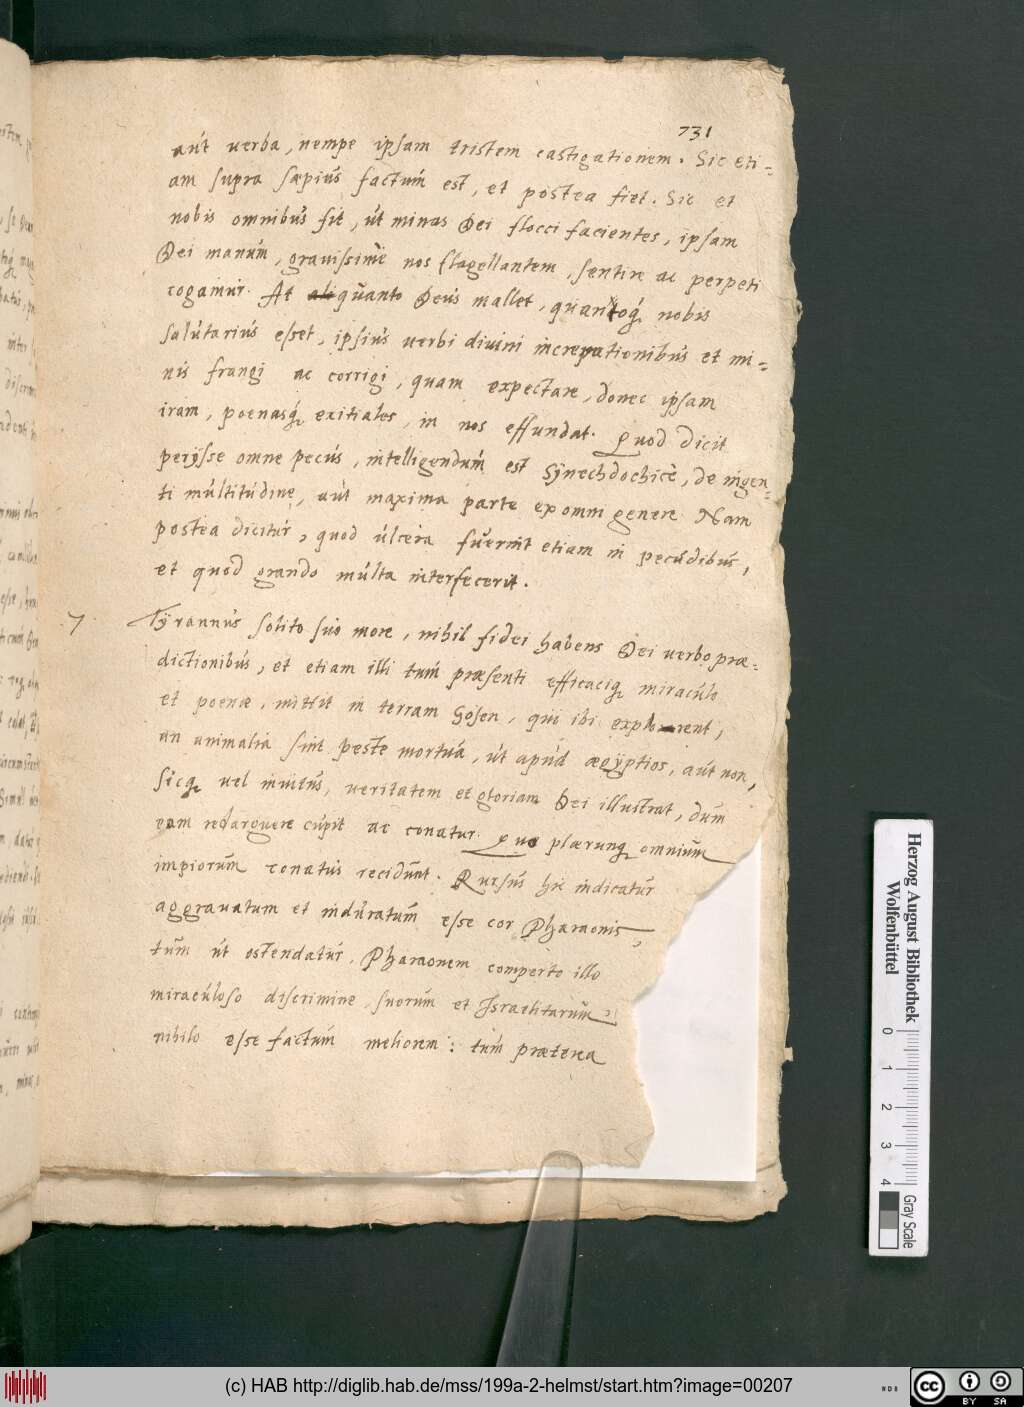 731
aut verba, nempe ipsam tristem castigationem. Sic eti=
am supra sæpius factum est, et postea fiet. Sic et
nobis omnibus fit, ut minas Dei flocci facientes, ipsam
Dei manum, gravissimè nos flagellantem, sentire ac perpeti
cogamur. At quanto Deus mallet, quantoq́ nobis
salutarius esset, ipsius verbi divini increpationibus et mi=
nis frangi ac corrigi, quam expectare, donec ipsam
iram, poenasq́ exitiales, in nos effundat. Quod dicit
perijsse omne pecus, intelligendum est Synechdochicè, de ingen=
ti multitudine, aut maxima parte ex omni genere. Nam
postea dicitur, quod ulcera fuerint etiam in pecudibus,
et quod grando multa interfecerit.
7. Tyrannus solito suo more, nihil fidei habens Dei verbo præ=
dictionibus, et etiam illi tum præsenti efficaciq́ miraculo
et poenæ, mittit in terram Gosen, qui ibi explorent,
an animalia sint peste mortua, ut apud ægyptios, aut non,
sicq́ vel invitus, veritatem et gloriam Dei illustrat, dum
eam redarguere cupit ac conatur. Quo plærunq́ omnium
impiorum conatus recidunt. Rursus hic indicatur
aggravatum et induratum esse cor Pharaonis,
tum ut ostendatur, Pharaonem comperto illo
miraculoso discrimine suorum et Israelitarum,
nihilo esse factum meliorem: tum præterea
Herzog August Bibliothek
Wolfenbüttel
0 1 2 3 4
Gray Scale
(c) HAB http://diglib.hab.de/mss/199a-2-helmst/start.htm?image=00207
cc BY SA